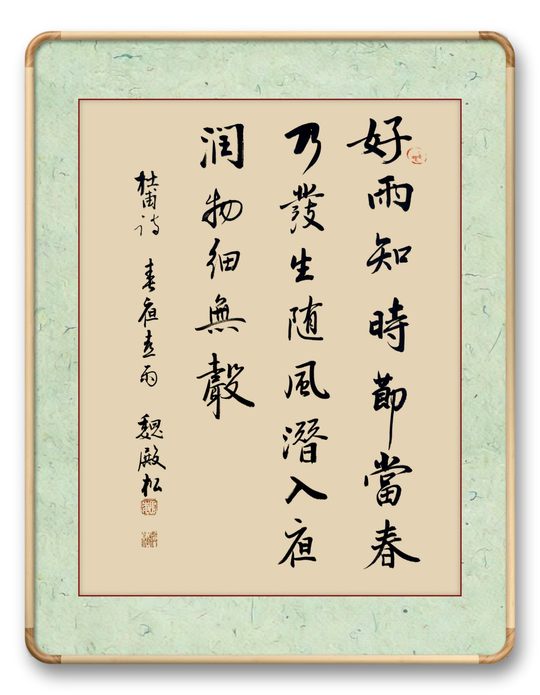 好雨知時節當春
乃發生随風潛入夜
润物细無聲
杜甫诗 春夜喜雨 魏殿松